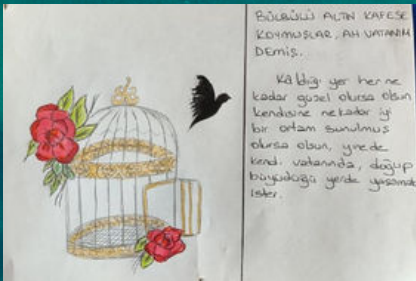 BÜLBÜLÜ ALTIN KAFESE
KOYMUŞLAR, AH VATANIM
DEMİŞ..
Kaldığı yer her ne
kadar güzel olursa olsun
kendisine ne kadar iyi
bir ortam sunulmuş
olursa olsun, yine de
kendi vatanında, doğup
büyüdüğü yerde yaşamak
ister.